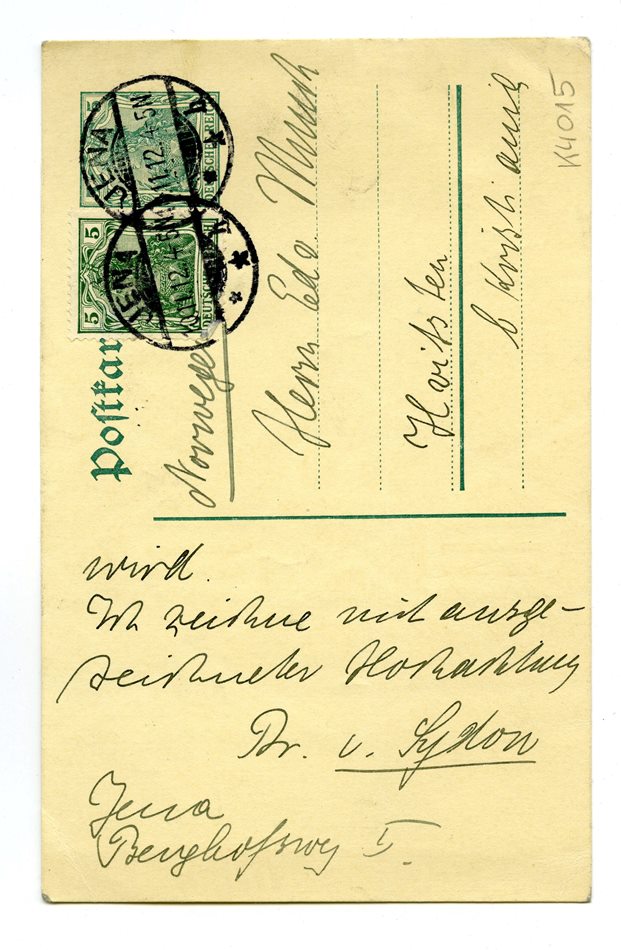 K4015
5
DEUTSCHES REICH
JENA
11.12.4-5N
5
DEUTSCHES REICH
JENA
10.11.12.4-5N
Postkarte
Norwegen
Herrn Edv. Munch
Hvitsten
b Kristiania
wird.
Ich zeichne mit ausge-
zeichneter Hochachtung
Dr. v. Sydow
Jena
Berghofsweg I.